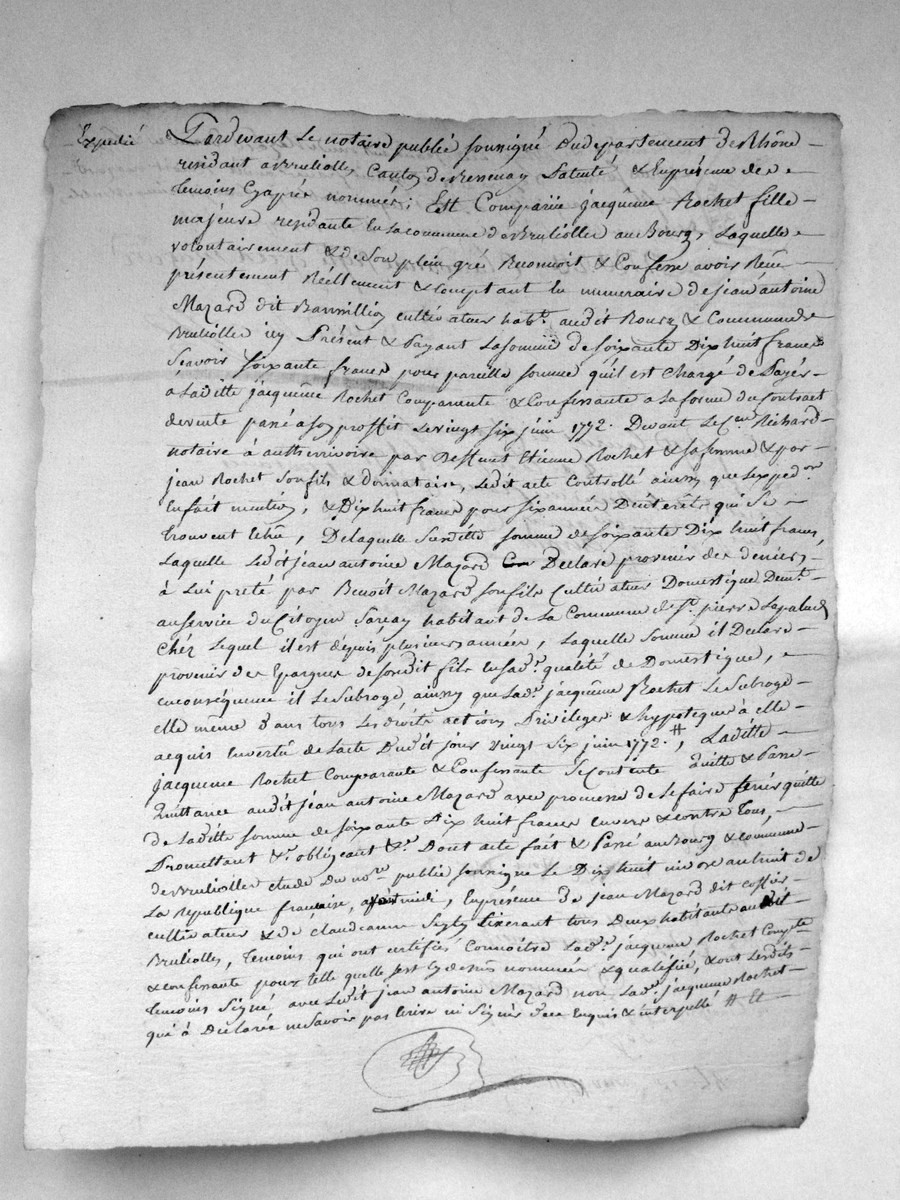 Expedié
Pardevant Le notaire public soussigné Du departement du Rhône
residant a Brulliolles Canton de Bessenay Patenté & En présence des
temoins Cy après nommés; Est Comparüe jacqueme Rochet fille
majeure residante En la commune de Brulliolles au Bourg, Laquelle
volontairement & de Son plein gré Reconnoit & Confesse avoir Reçu
présentement Réellement & comptant En numeraire de jean antoine
Mazard dit cultivateur habt. audit Bourg & Commune de
Brulliolles icy Présent & Payant La somme de soixante Dix huit francs
Sçavoir soixante francs pour pareille somme qu'il est chargé de Payer
a Laditte jacquême Rochet Comparante & Confessante a La forme du Contract
de vente passé a son proffit Le vingt six juin 1772. Devant Le Cen. Richard
notaire à par Deffunt Etienne Rochet & sa femme & par
jean Rochet Son fils & donnataire, Ledit acte Controllé ainsy que Lexpedon.
En fait mention, & Dix huit francs pour six années D'interêts qui se
trouvent Echus, De laquelle Susditte somme de soixante Dix huit francs,
Laquelle Ledit jean antoine Mazard Declare provenir des deniers
à Lui preté par Benoît Mazard son fils Cultivateur Domestique Demt.
au service du Citoyen habitant de La Commune de St. pierre Lapalud
chéz Lequel il est dépuis plusieurs années, Laquelle Somme il Declare
provenir des Epargnes de Sondit fils En sade. qualité de Domestique, e
conséquence il Le Subroge, ainsy que Lade. jacquême Rochet Le Subroge
elle même Dans tous Les droits actions Privileges & hypoteques à elle
acquis En vertu de Lacte Dudit jour vingt Six juin 1772. #, Laditte
jacqueme Rochet Comparante & Confessante Se Contente Quitte & Passe
Quittance audit jean antoine Mazard avec promesse de Le faire tenir quitte
de Laditte somme de soixante Dix huit francs Envers & contre Tous,
Promettant &a. obligeant &a. Dont acte fait & Passé au Bourg & commune
de Brulliolles etude Du nore. public soussigné Le Dix huit nivose an huit de
La Republique française, après midi, En présence De jean Mazard dit
cultivateur & de claude tous Deux habitants audit
Brulliolles, temoins qui ont certifiés Connoître Lade. jacqueme Rochet Compte.
& confessante pour telle quelle s'est cy dessus nommée & qualifiée, & ont Lesdits
temoins Signé avec Ledit jean antoine Mazard non Lade. jacqueme Rochet
qui à Declarée ne Savoir pas Ecrire ni Signer De ce Enquis & interpellé # Et